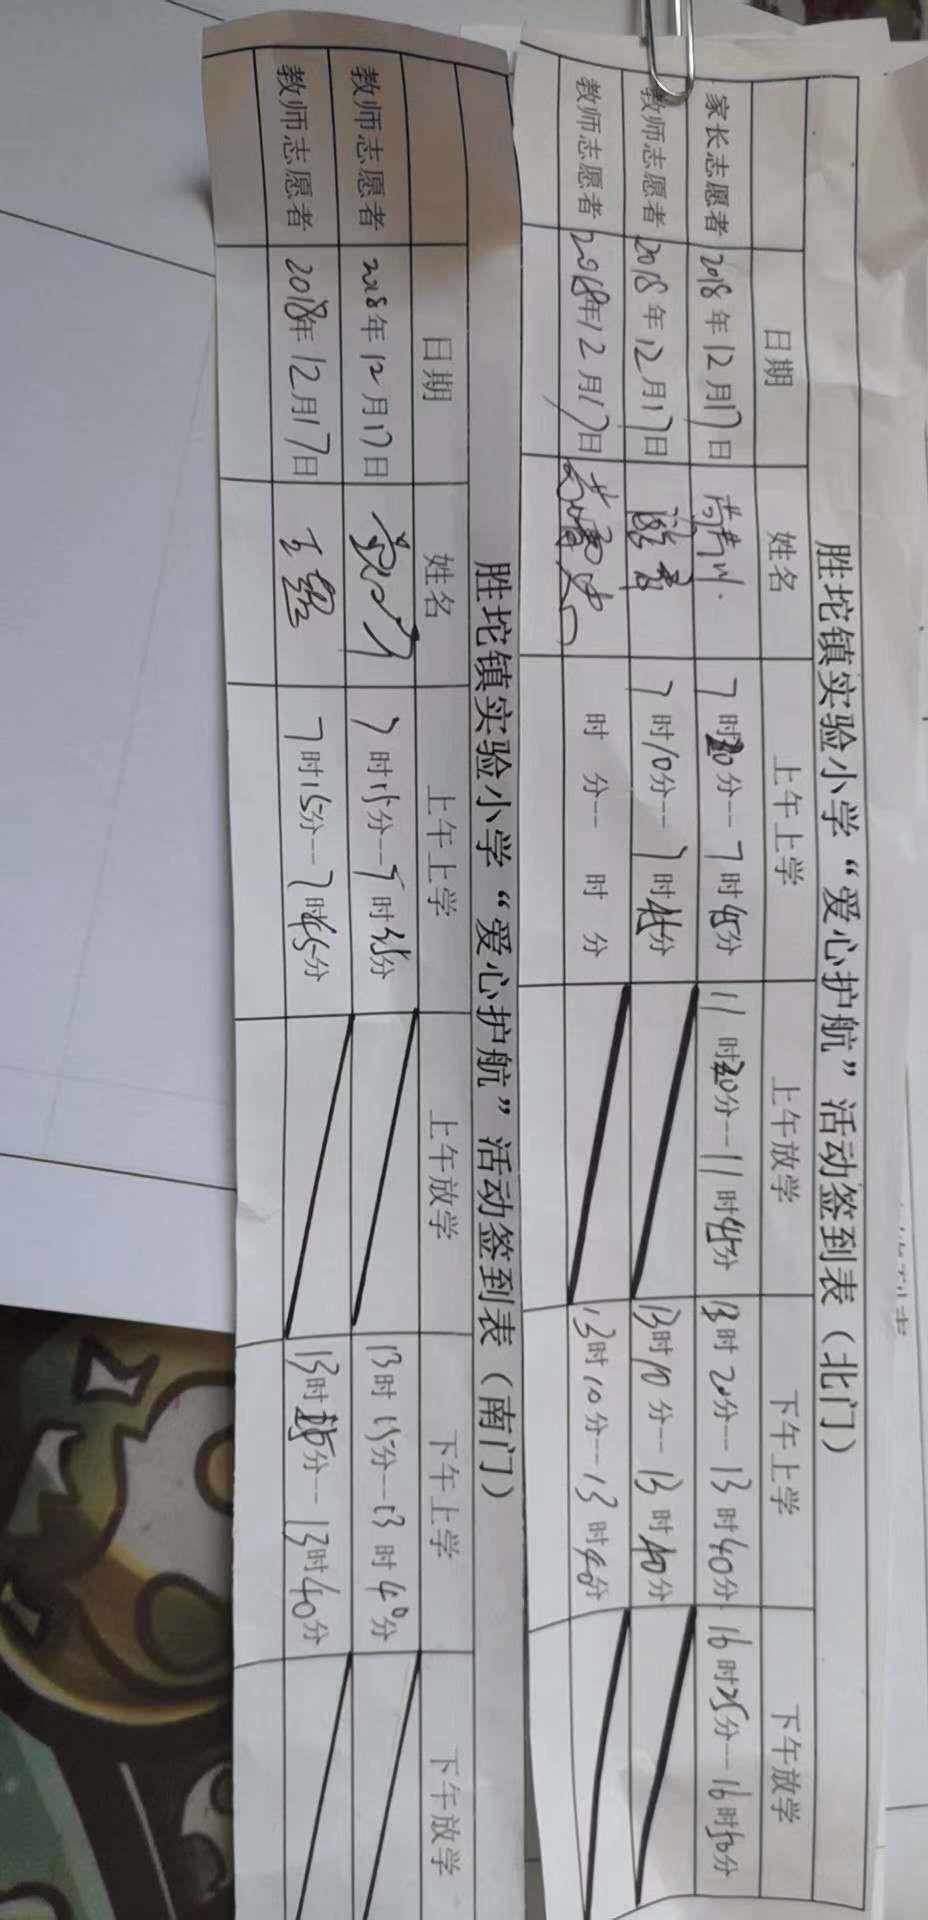 胜坨镇实验小学“爱心护航”活动签到表（北门）
日期 姓名 上午上学 上午放学 下午上学 下午放学
家长志愿者 2018年12月17日 7时20分--7时45分 11时20分--11时45分 13时20分--13时40分 16时25分--16时50分
教师志愿者 2018年12月17日 7时10分--7时45分 13时10分--13时40分
教师志愿者 2018年12月17日 时 分-- 时 分 13时10分--13时40分
胜坨镇实验小学“爱心护航”活动签到表（南门）
日期 姓名 上午上学 上午放学 下午上学 下午放学
教师志愿者 2018年12月17日 7时15分-- 时 分 13时15分--13时40分
教师志愿者 2018年12月17日 王 7时15分--7时45分 13时 分--13时40分